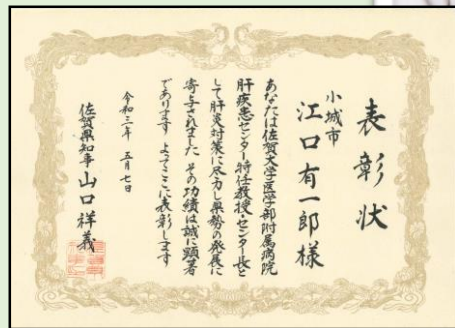 表彰状
小城市
江口有一郎様
あなたは佐賀大学医学部附属病院
肝疾患センター特任教授・センター長と
して肝炎対策に尽力し県勢の発展に
寄与されました その功績は誠に顕著
であります よってここに表彰します
令和三年 五月七日
佐賀県知事 山口祥義